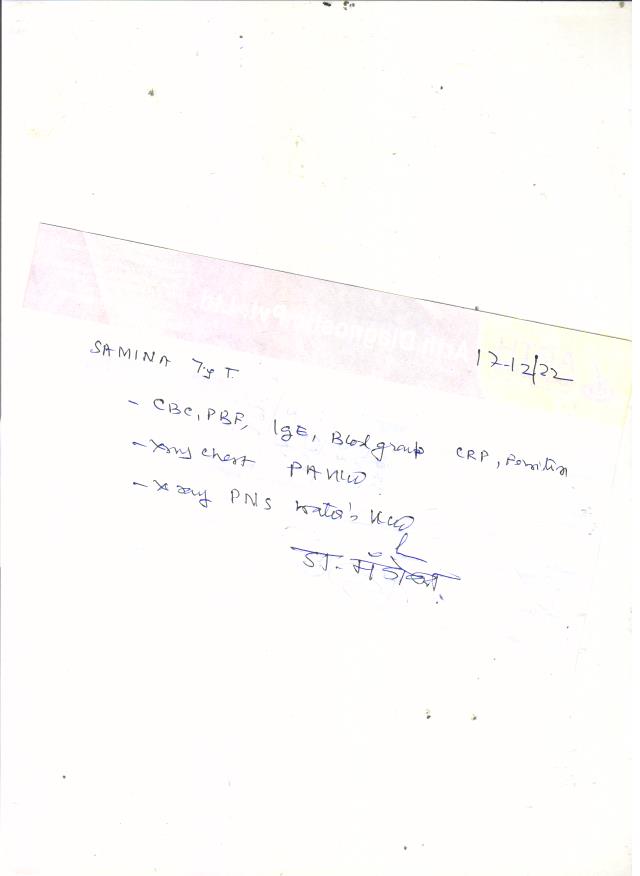 SAMINA 7y T. 17-12/22
- CBC, PBF, IgE, Blood group CRP, Ferritin
- Xray chest PA view
- X ray PNS water's view
डा.